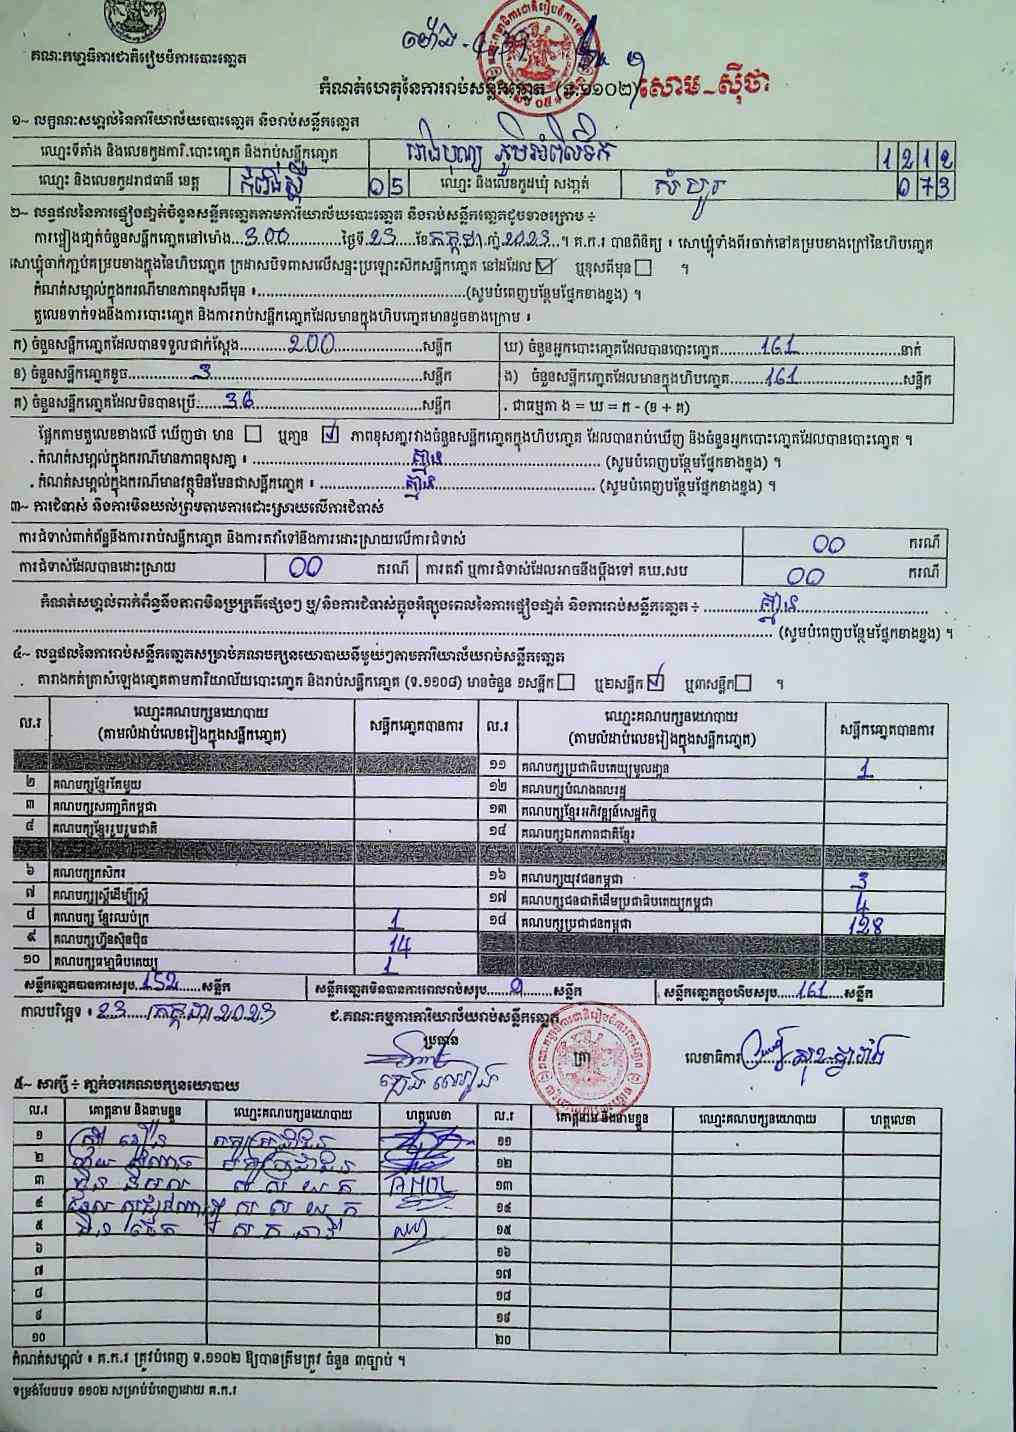 គណៈកម្មាធិការជាតិរៀបចំការបោះឆ្នោត
កំណត់ហេតុនៃការរាប់សន្លឹកឆ្នោត (ទ.១១០២) សោម-ស៊ីថា
១~ លក្ខណៈសម្គាល់នៃការិយាល័យបោះឆ្នោត និងរាប់សន្លឹកឆ្នោត
ឈ្មោះទីតាំង និងលេខកូដការិ.បោះឆ្នោត និងរាប់សន្លឹកឆ្នោត រោងបុណ្យ ភូមិអំពិលទឹក 1212
ឈ្មោះ និងលេខកូដរាជធានី ខេត្ត កំពង់ស្ពឺ 05 ឈ្មោះ និងលេខកូដឃុំ សង្កាត់ 073
២~ លទ្ធផលនៃការផ្ទៀងផ្ទាត់ចំនួនសន្លឹកឆ្នោតតាមការិយាល័យបោះឆ្នោត និងរាប់សន្លឹកឆ្នោតដូចខាងក្រោម ៖
ការផ្ទៀងផ្ទាត់ចំនួនសន្លឹកឆ្នោតនៅម៉ោង...3.00...ថ្ងៃទី.23...ខែ កក្កដា ឆ្នាំ 2023..។ គ.ក.រ បានពិនិត្យ ៖ សោឃ្លុំទាំងពីរចាក់នៅគម្របខាងក្រៅនៃហិបឆ្នោត
សោឃ្លុំចាក់ភ្ជាប់គម្របខាងក្នុងនៃហិបឆ្នោត ក្រដាសបិទពាសលើសន្ទះប្រឡោះសិកសន្លឹកឆ្នោត នៅដដែល ☑ ឬខុសពីមុន ☐ ។
កំណត់សម្គាល់ក្នុងករណីមានភាពខុសពីមុន ៖..............(សូមបំពេញបន្ថែមផ្នែកខាងខ្នង) ។
តួលេខទាក់ទងនឹងការបោះឆ្នោត និងការរាប់សន្លឹកឆ្នោតដែលមានក្នុងហិបឆ្នោតមានដូចខាងក្រោម ៖
ក) ចំនួនសន្លឹកឆ្នោតដែលបានទទួលជាក់ស្តែង......200......សន្លឹក ឃ) ចំនួនអ្នកបោះឆ្នោតដែលបានបោះឆ្នោត......161......នាក់
ខ) ចំនួនសន្លឹកឆ្នោតខូច......3......សន្លឹក ង) ចំនួនសន្លឹកឆ្នោតដែលមានក្នុងហិបឆ្នោត......161......សន្លឹក
គ) ចំនួនសន្លឹកឆ្នោតដែលមិនបានប្រើ:...36......សន្លឹក . ជាធម្មតា ង = ឃ = ក - (ខ + គ)
ផ្អែកតាមតួលេខខាងលើ ឃើញថា មាន ☐ ឬគ្មាន ☑ ភាពខុសគ្នារវាងចំនួនសន្លឹកឆ្នោតក្នុងហិបឆ្នោត ដែលបានរាប់ឃើញ និងចំនួនអ្នកបោះឆ្នោតដែលបានបោះឆ្នោត ។
. កំណត់សម្គាល់ក្នុងករណីមានភាពខុសគ្នា ៖ ......គ្មាន...... (សូមបំពេញបន្ថែមផ្នែកខាងខ្នង) ។
. កំណត់សម្គាល់ក្នុងករណីមានវត្ថុមិនមែនជាសន្លឹកឆ្នោត ៖ ......គ្មាន...... (សូមបំពេញបន្ថែមផ្នែកខាងខ្នង) ។
៣~ ការជំទាស់ និងការមិនយល់ព្រមតាមការដោះស្រាយលើការជំទាស់
ការជំទាស់ពាក់ព័ន្ធនឹងការរាប់សន្លឹកឆ្នោត និងការតវ៉ាទៅនឹងការដោះស្រាយលើការជំទាស់ 00 ករណី
ការជំទាស់ដែលបានដោះស្រាយ 00 ករណី ការតវ៉ា ឬការជំទាស់ដែលអាចនឹងប្តឹងទៅ គឃ.សប 00 ករណី
កំណត់សម្គាល់ពាក់ព័ន្ធនឹងភាពមិនប្រក្រតីផ្សេងៗ ឬ/និងការជំទាស់ក្នុងអំឡុងពេលនៃការផ្ទៀងផ្ទាត់ និងការរាប់សន្លឹកឆ្នោត ៖ ......គ្មាន......
...... (សូមបំពេញបន្ថែមផ្នែកខាងខ្នង) ។
៤~ លទ្ធផលនៃការរាប់សន្លឹកឆ្នោតសម្រាប់គណបក្សនយោបាយនីមួយៗតាមការិយាល័យរាប់សន្លឹកឆ្នោត
តារាងកត់ត្រាសំឡេងឆ្នោតតាមការិយាល័យបោះឆ្នោត និងរាប់សន្លឹកឆ្នោត (ទ.១១០៨) មានចំនួន ១សន្លឹក ☐ ឬ២សន្លឹក ☑ ឬ៣សន្លឹក ☐ ។
ល.រ ឈ្មោះគណបក្សនយោបាយ (តាមលំដាប់លេខរៀងក្នុងសន្លឹកឆ្នោត) សន្លឹកឆ្នោតបានការ ល.រ ឈ្មោះគណបក្សនយោបាយ (តាមលំដាប់លេខរៀងក្នុងសន្លឹកឆ្នោត) សន្លឹកឆ្នោតបានការ
១១ គណបក្សប្រជាធិបតេយ្យមូលដ្ឋាន 1
២ គណបក្សខ្មែរតែមួយ ១២ គណបក្សបំណងពលរដ្ឋ
៣ គណបក្សសញ្ជាតិកម្ពុជា ១៣ គណបក្សខ្មែរអភិវឌ្ឍន៍សេដ្ឋកិច្ច
៤ គណបក្សខ្មែររួបរួមជាតិ ១៤ គណបក្សឯកភាពជាតិខ្មែរ
៦ គណបក្សកសិករ ១៦ គណបក្សយុវជនកម្ពុជា 3
៧ គណបក្សស្ត្រីដើម្បីស្ត្រី ១៧ គណបក្សជនជាតិដើមប្រជាធិបតេយ្យកម្ពុជា 4
៨ គណបក្ស ខ្មែរឈប់ក្រ 1 ១៨ គណបក្សប្រជាជនកម្ពុជា 128
៩ គណបក្សហ្វ៊ុនស៊ិនប៉ិច 14
១០ គណបក្សធម្មាធិបតេយ្យ 1
សន្លឹកឆ្នោតបានការសរុប...152...សន្លឹក សន្លឹកឆ្នោតមិនបានការពេលរាប់សរុប...9...សន្លឹក សន្លឹកឆ្នោតក្នុងហិបសរុប...161...សន្លឹក
កាលបរិច្ឆេទ ៖ 23 / កក្កដា / 2023 ជ.គណៈកម្មការការិយាល័យរាប់សន្លឹកឆ្នោត
ប្រធាន ត្រា លេខាធិការ
៥~ សាក្សី ៖ ភ្នាក់ងារគណបក្សនយោបាយ
ល.រ គោត្តនាម និងនាមខ្លួន ឈ្មោះគណបក្សនយោបាយ ហត្ថលេខា ល.រ គោត្តនាម និងនាមខ្លួន ឈ្មោះគណបក្សនយោបាយ ហត្ថលេខា
១ ១១
២ ១២
៣ ១៣
៤ ១៤
៥ ១៥
៦ ១៦
៧ ១៧
៨ ១៨
៩ ១៩
១០ ២០
កំណត់សម្គាល់ ៖ គ.ក.រ ត្រូវបំពេញ ទ.១១០២ ឱ្យបានត្រឹមត្រូវ ចំនួន ៣ច្បាប់ ។
ទម្រង់បែបបទ ១១០២ សម្រាប់បំពេញដោយ គ.ក.រ